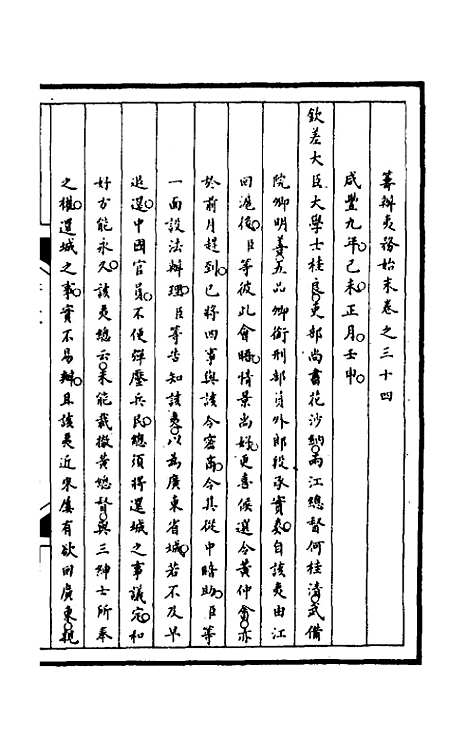 籌辦夷務始末卷之三十四
咸豐九年。己未正月。壬申
欽差大臣大學士桂良。吏部尚書花沙納。兩江總督何桂清。武備
院卿明善。五品卿銜刑部員外郎段承實奏。自該夷由江
回滬後。臣等彼此會晤。情景尚好。更喜候選令黃仲畬。亦
於前月趕到。已將四事與該令密商。令其從中暗助。臣等
一面設法辦理。臣等告知該夷。以為廣東省城。若不及早
退還。中國官員。不便彈壓兵民。總須將還城之事議定。和
好方能永久。該夷總云。未能裁撤黃總督。與三紳士所奉
之權。還城之事。實不易辦。且該夷近來屢有欲回廣東。親